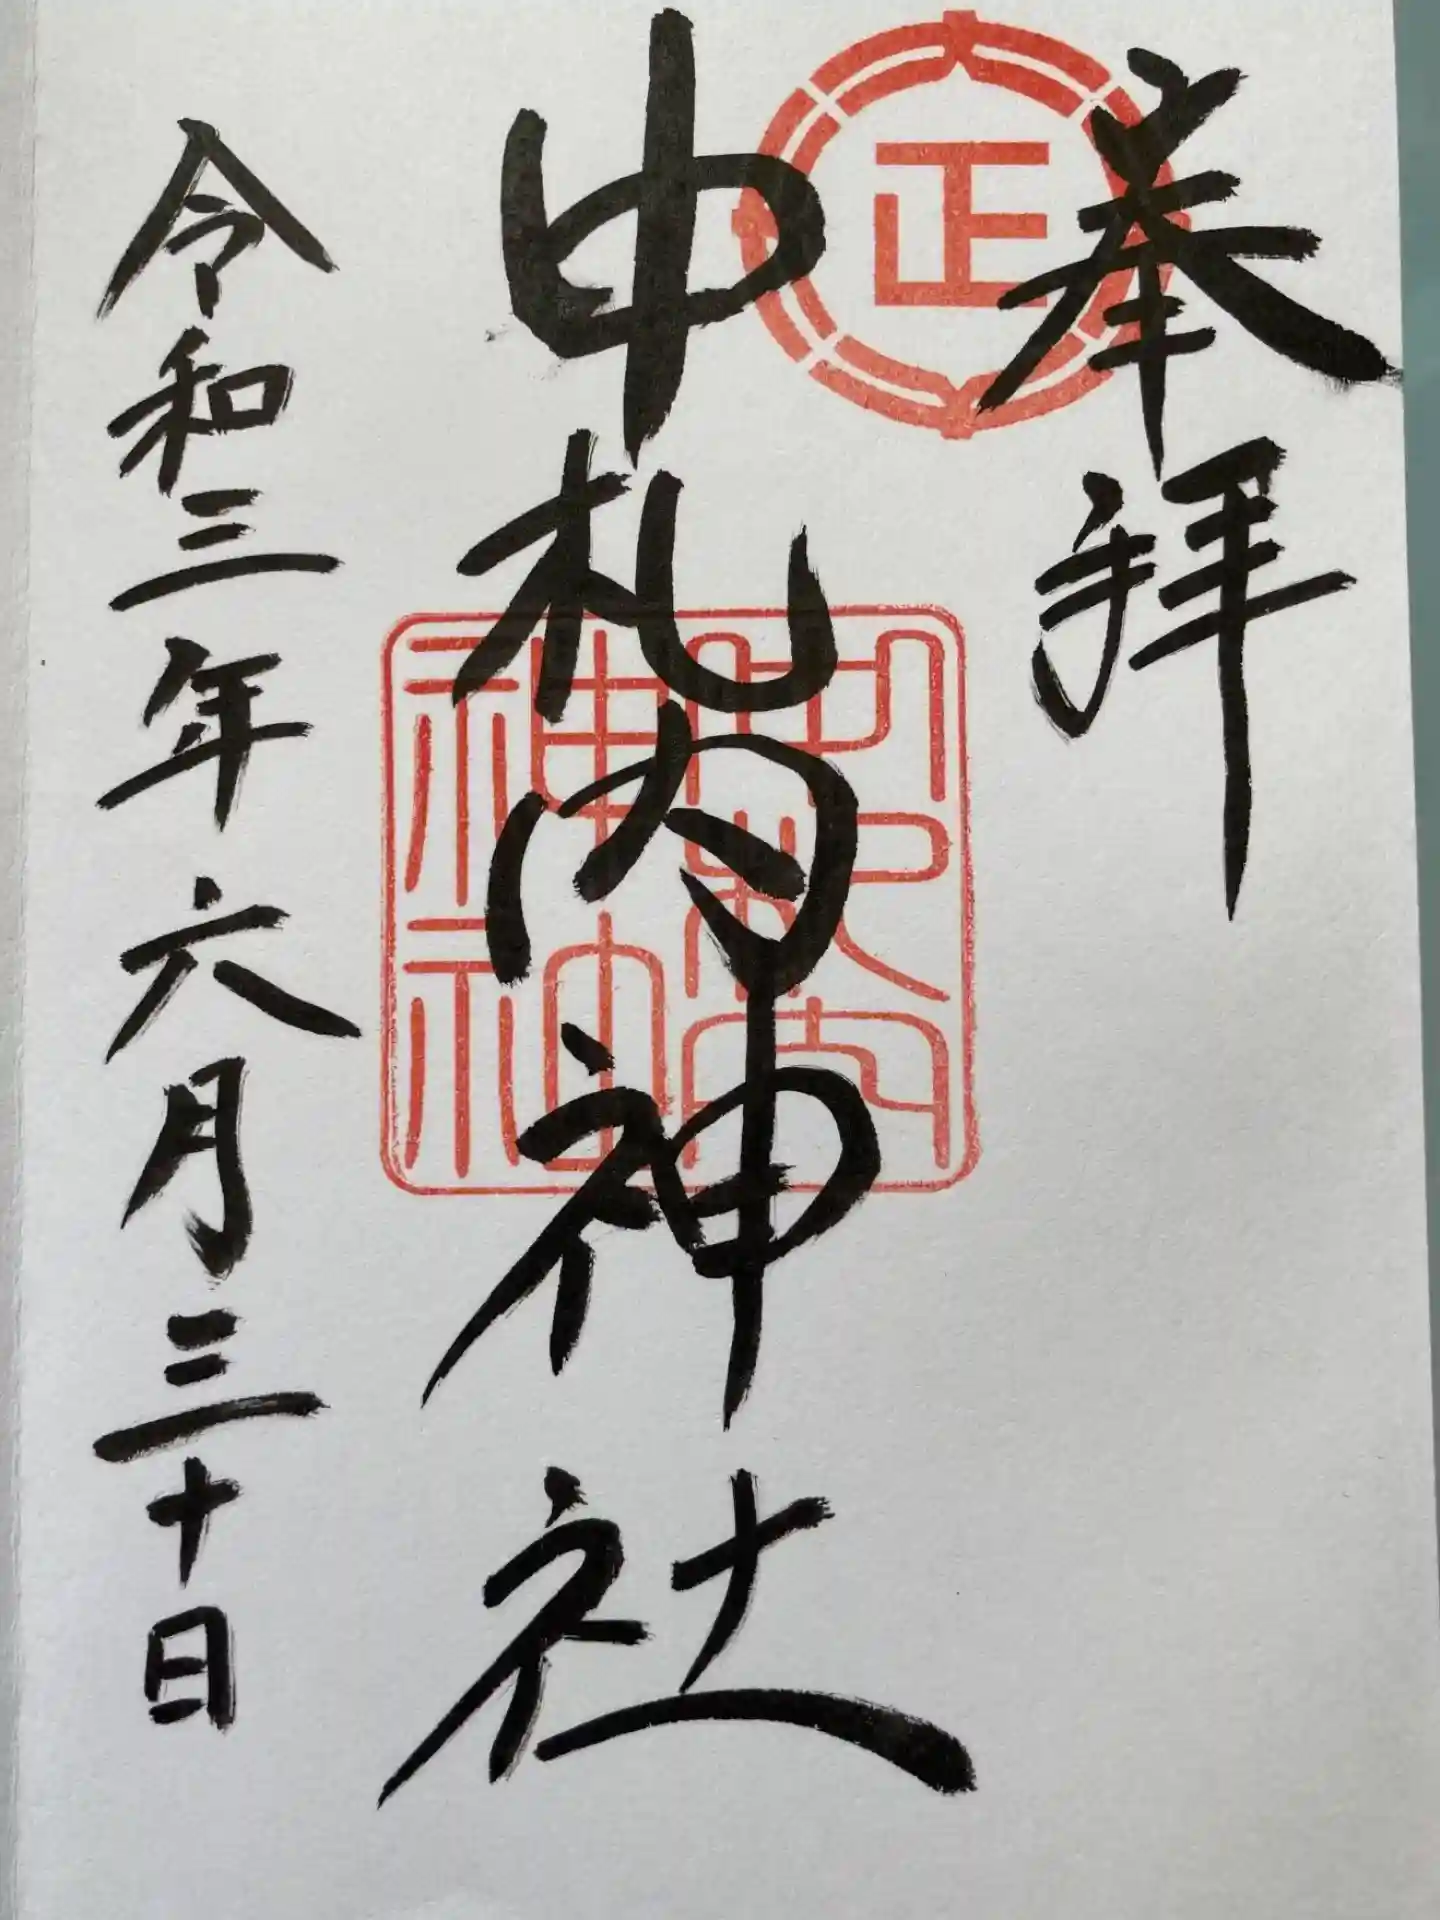 奉拝
正
中札内神社
中札内
神社
令和三年六月三十日